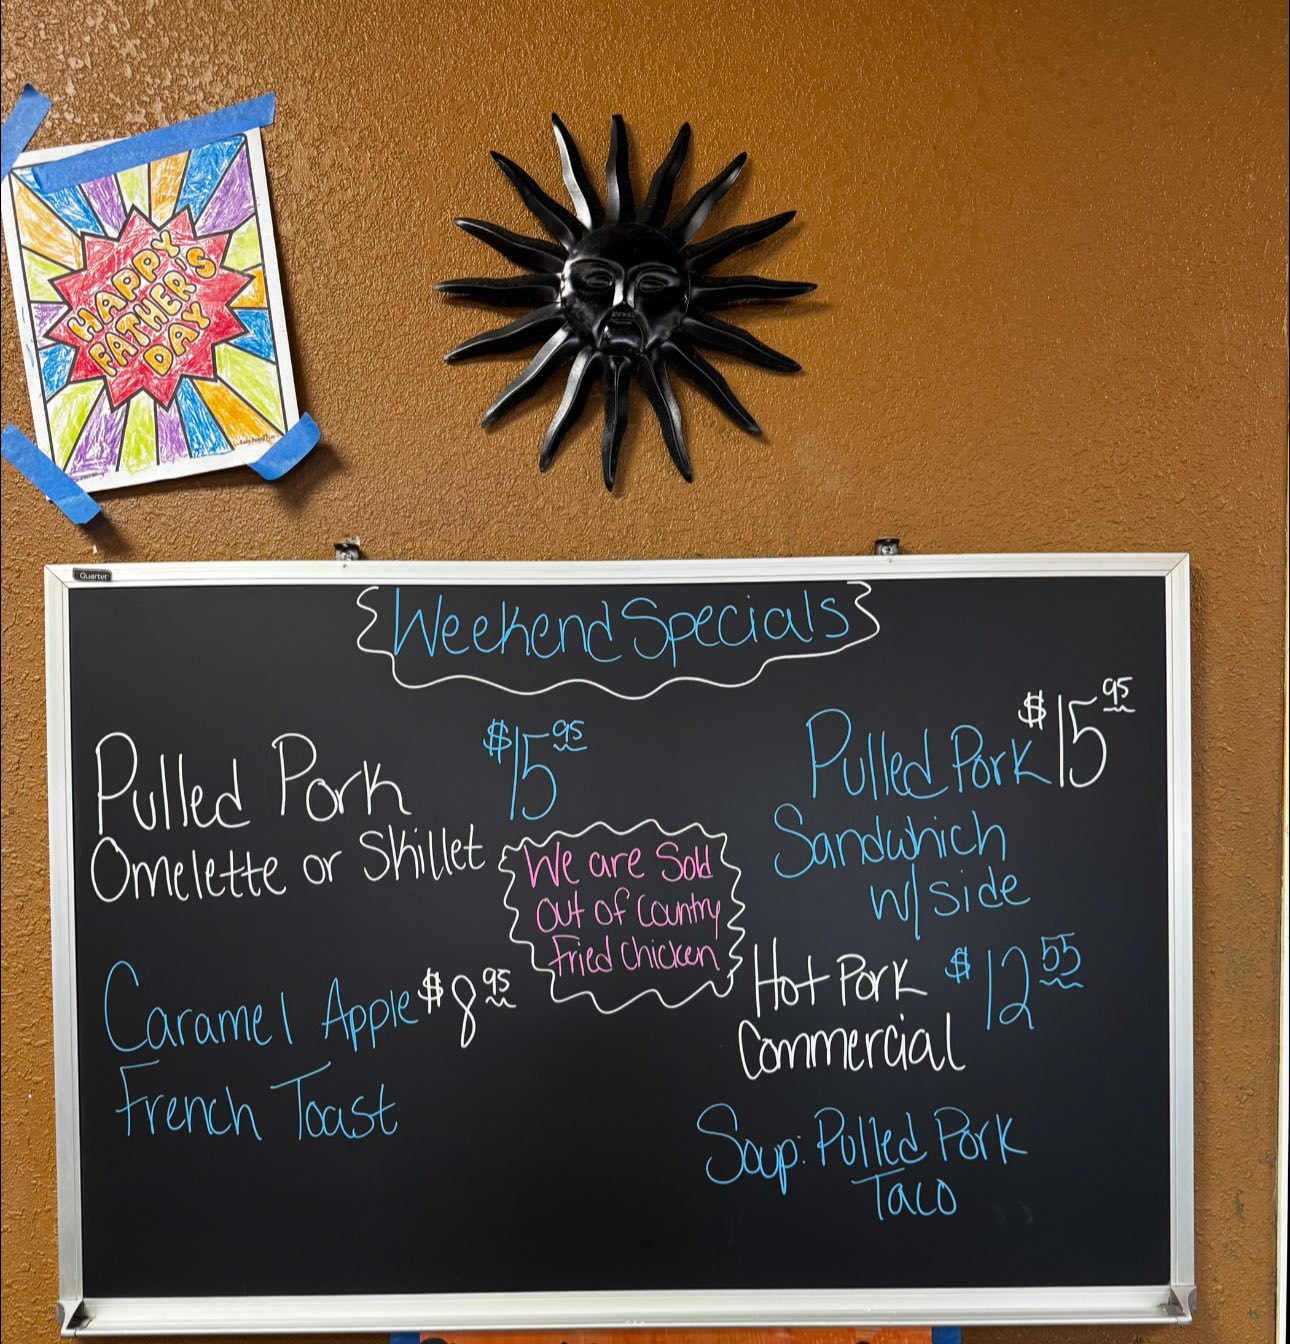 HAPPY
FATHER'S
DAY
Quartet
Weekend Specials
Pulled Pork $15 95
Omelette or Skillet
Caramel Apple $8 95
French Toast
We are Sold
Out of Country
Fried Chicken
Pulled Pork $15 95
Sandwhich
w/ side
Hot Pork $12 55
Commercial
Soup: Pulled Pork
Taco